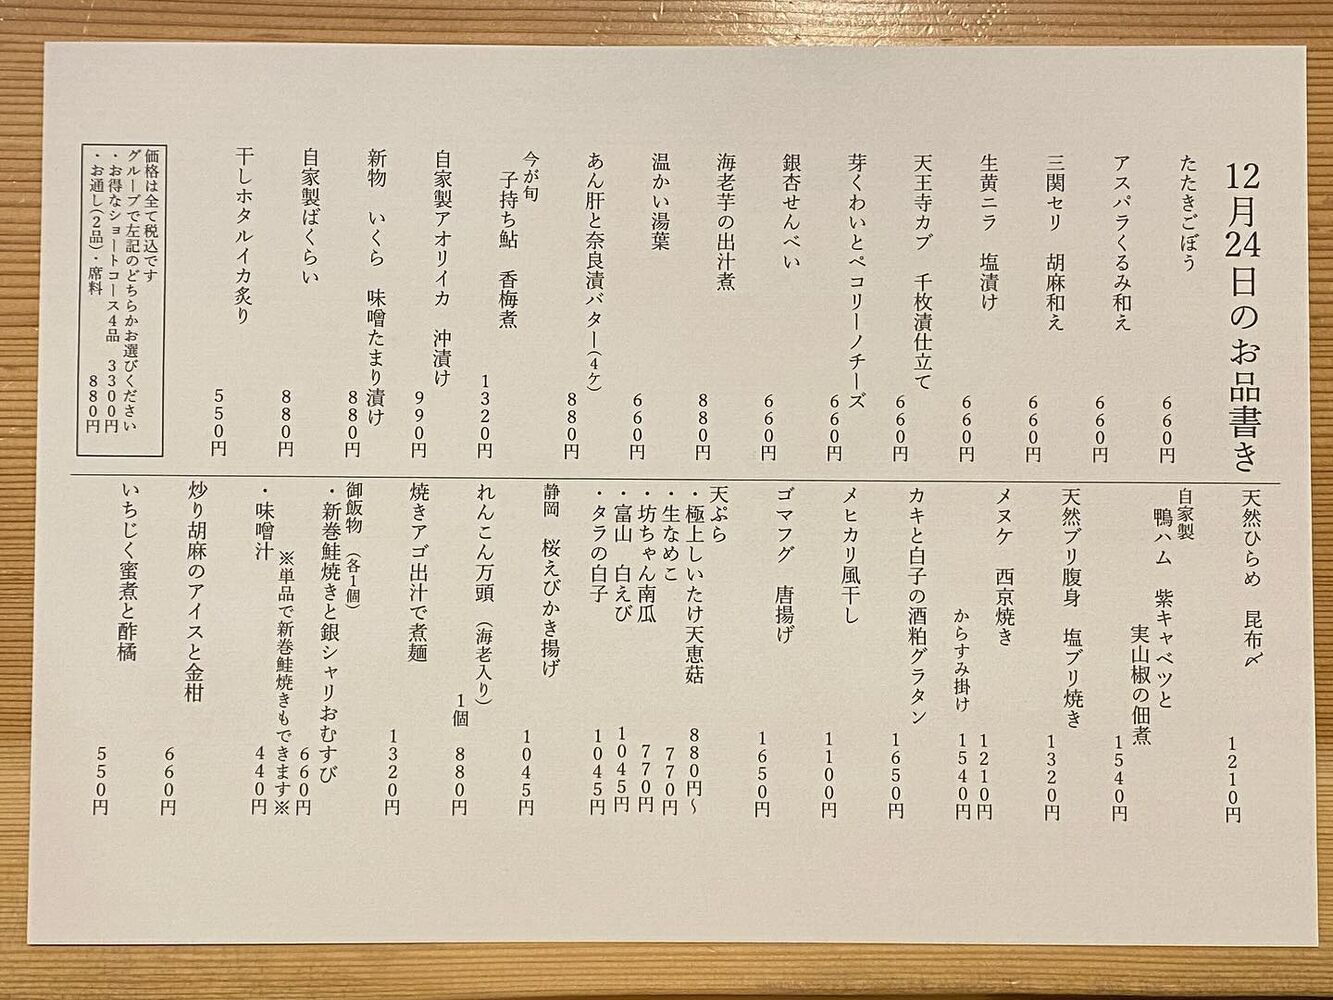 12月24日のお品書き
たたきごぼう
660円
アスパラくるみ和え
660円
三関セリ 胡麻和え
660円
生黄ニラ 塩漬け
660円
天王寺カブ 千枚漬仕立て
660円
芽くわいとペコリーノチーズ
660円
銀杏せんべい
660円
海老芋の出汁煮
880円
温かい湯葉
660円
あん肝と奈良漬バター(4ケ)
880円
今が旬
子持ち鮎 香梅煮
1320円
自家製アオリイカ 沖漬け
990円
新物 いくら 味噌たまり漬け
880円
自家製ばくらい
880円
干しホタルイカ炙り
550円
価格は全て税込です
グループで左記のどちらかお選びください
・お得なショートコース4品 3300円
・お通し(2品)・席料 880円
天然ひらめ 昆布〆
1210円
自家製
鴨ハム 紫キャベツと
実山椒の佃煮
1540円
天然ブリ腹身 塩ブリ焼き
1320円
メヌケ 西京焼き
1210円
からすみ掛け 1540円
カキと白子の酒粕グラタン
1650円
メヒカリ風干し
1100円
ゴマフグ 唐揚げ
1650円
天ぷら
・極上しいたけ天恵菇 880円〜
・生なめこ 770円
・坊ちゃん南瓜 770円
・富山 白えび 1045円
・タラの白子 1045円
静岡 桜えびかき揚げ
1045円
れんこん万頭 (海老入り)
1個 880円
焼きアゴ出汁で煮麺
1320円
御飯物 (各1個)
・新巻鮭焼きと銀シャリおむすび
660円
※単品で新巻鮭焼きもできます※
・味噌汁 440円
炒り胡麻のアイスと金柑
660円
いちじく蜜煮と酢橘
550円